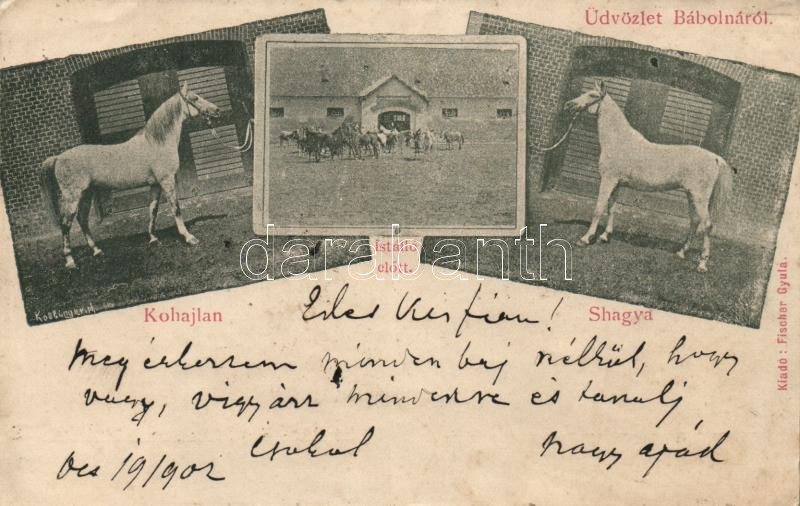 Üdvözlet Bábolnáról.
Istálló
előtt.
Kohajlan
Shagya
Kiadó: Fischer Gyula.
darabanth
Édes Kisfiam!
Megérkeztem minden baj nélkül, hogy
vagy, vigyázz mindenre és tanulj
csókol nagyapád
19/902